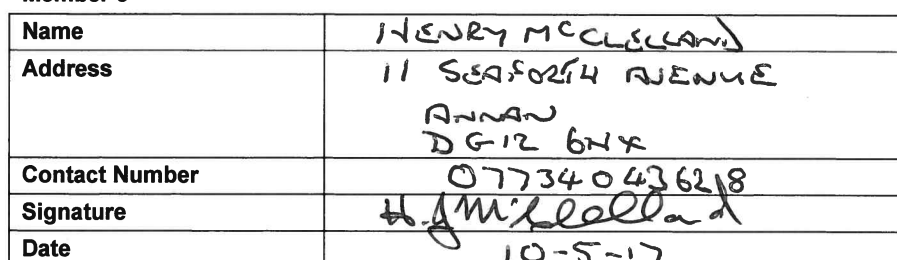 Name HENRY MCCLELLAND
Address 11 SEAFORTH AVENUE
ANNAN
DG12 6NX
Contact Number 07734043628
Signature H.J McClelland
Date 10-5-17